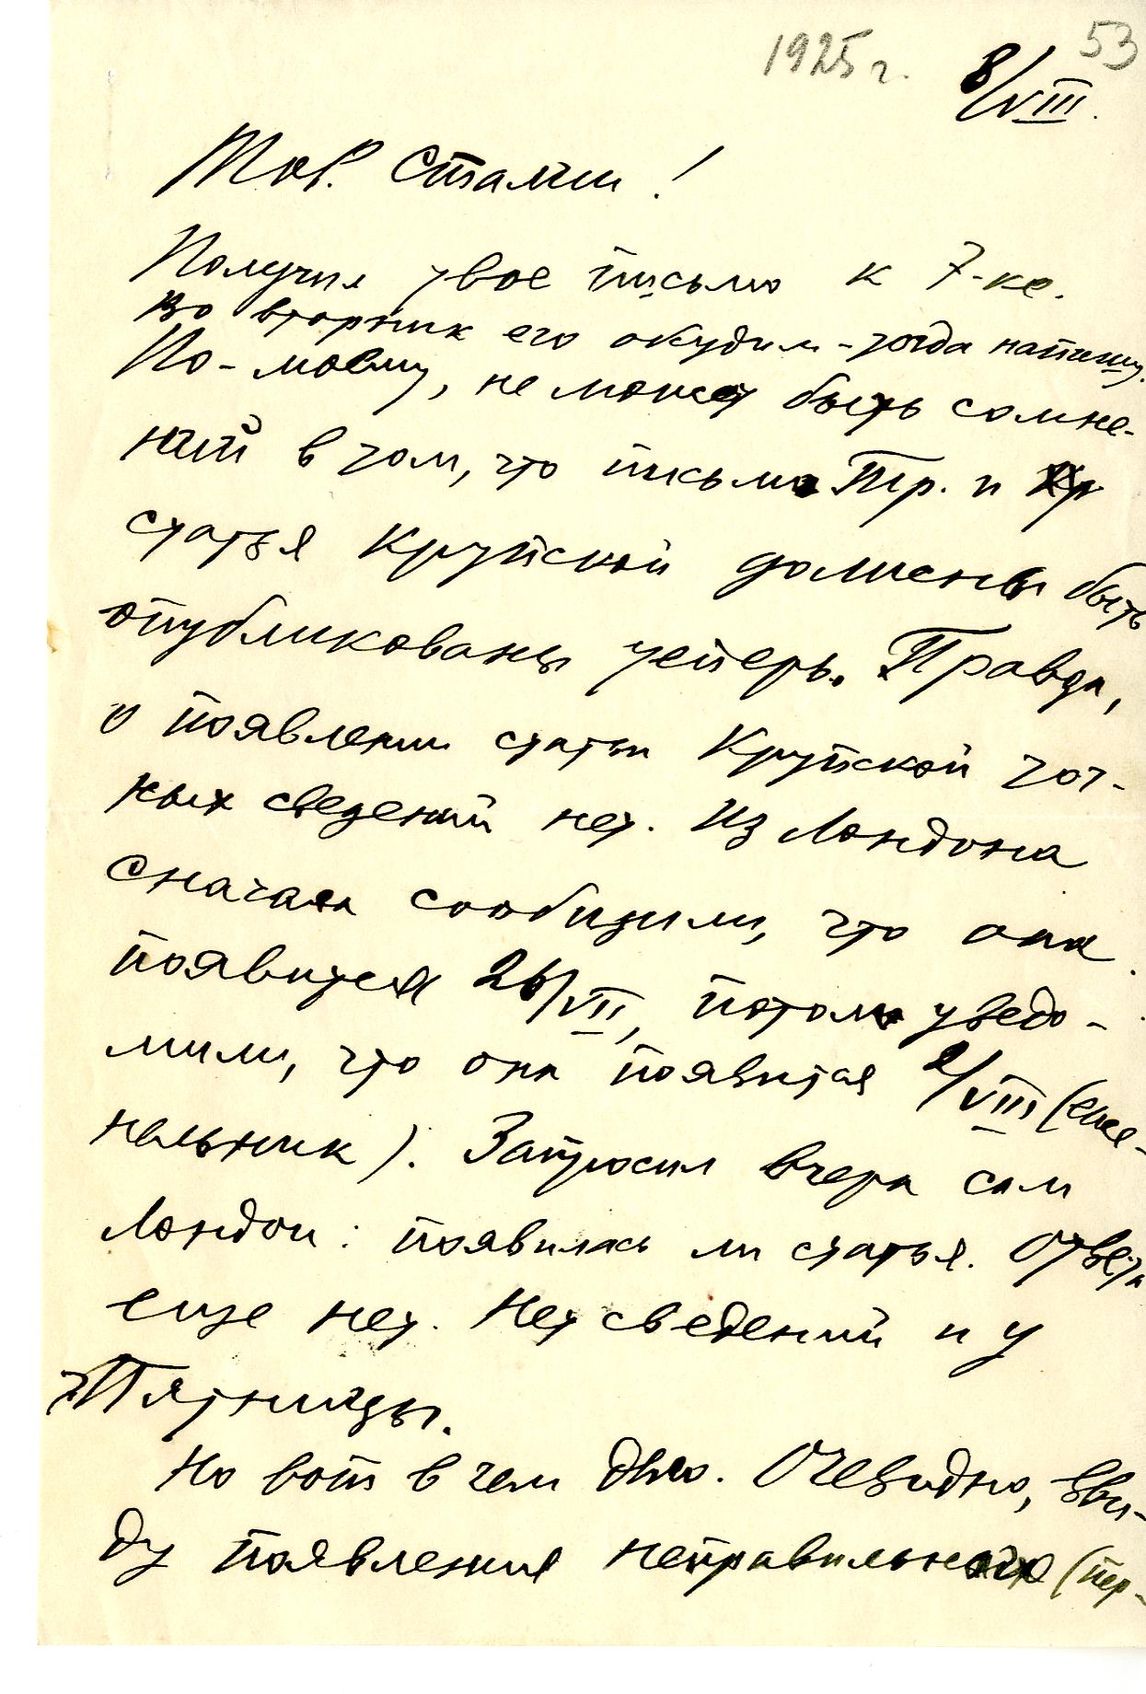 53
1925 г. 8/VIII.
Тов. Сталин!
Получил твое письмо к 7-ке.
Во вторник его обсудим - тогда напишу.
По-моему, не может быть сомне-
ний в том, что письмо Тр. и
статья Крупской должны быть
опубликованы теперь. Правда,
о появлении статьи Крупской точ-
ных сведений нет. Из Лондона
сначала сообщили, что она
появится 26/VII, потом уведо-
мили, что она появится 2/VIII (еже-
недельник). Запросил вчера сам
Лондон: появилась ли статья. Ответа
еще нет. Нет сведений и у
Пятницы.
Но вот в чем дело. Очевидно, вви-
ду появления неправильного (пер-